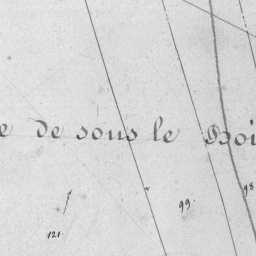 e de sous le Boi
98
99.
121